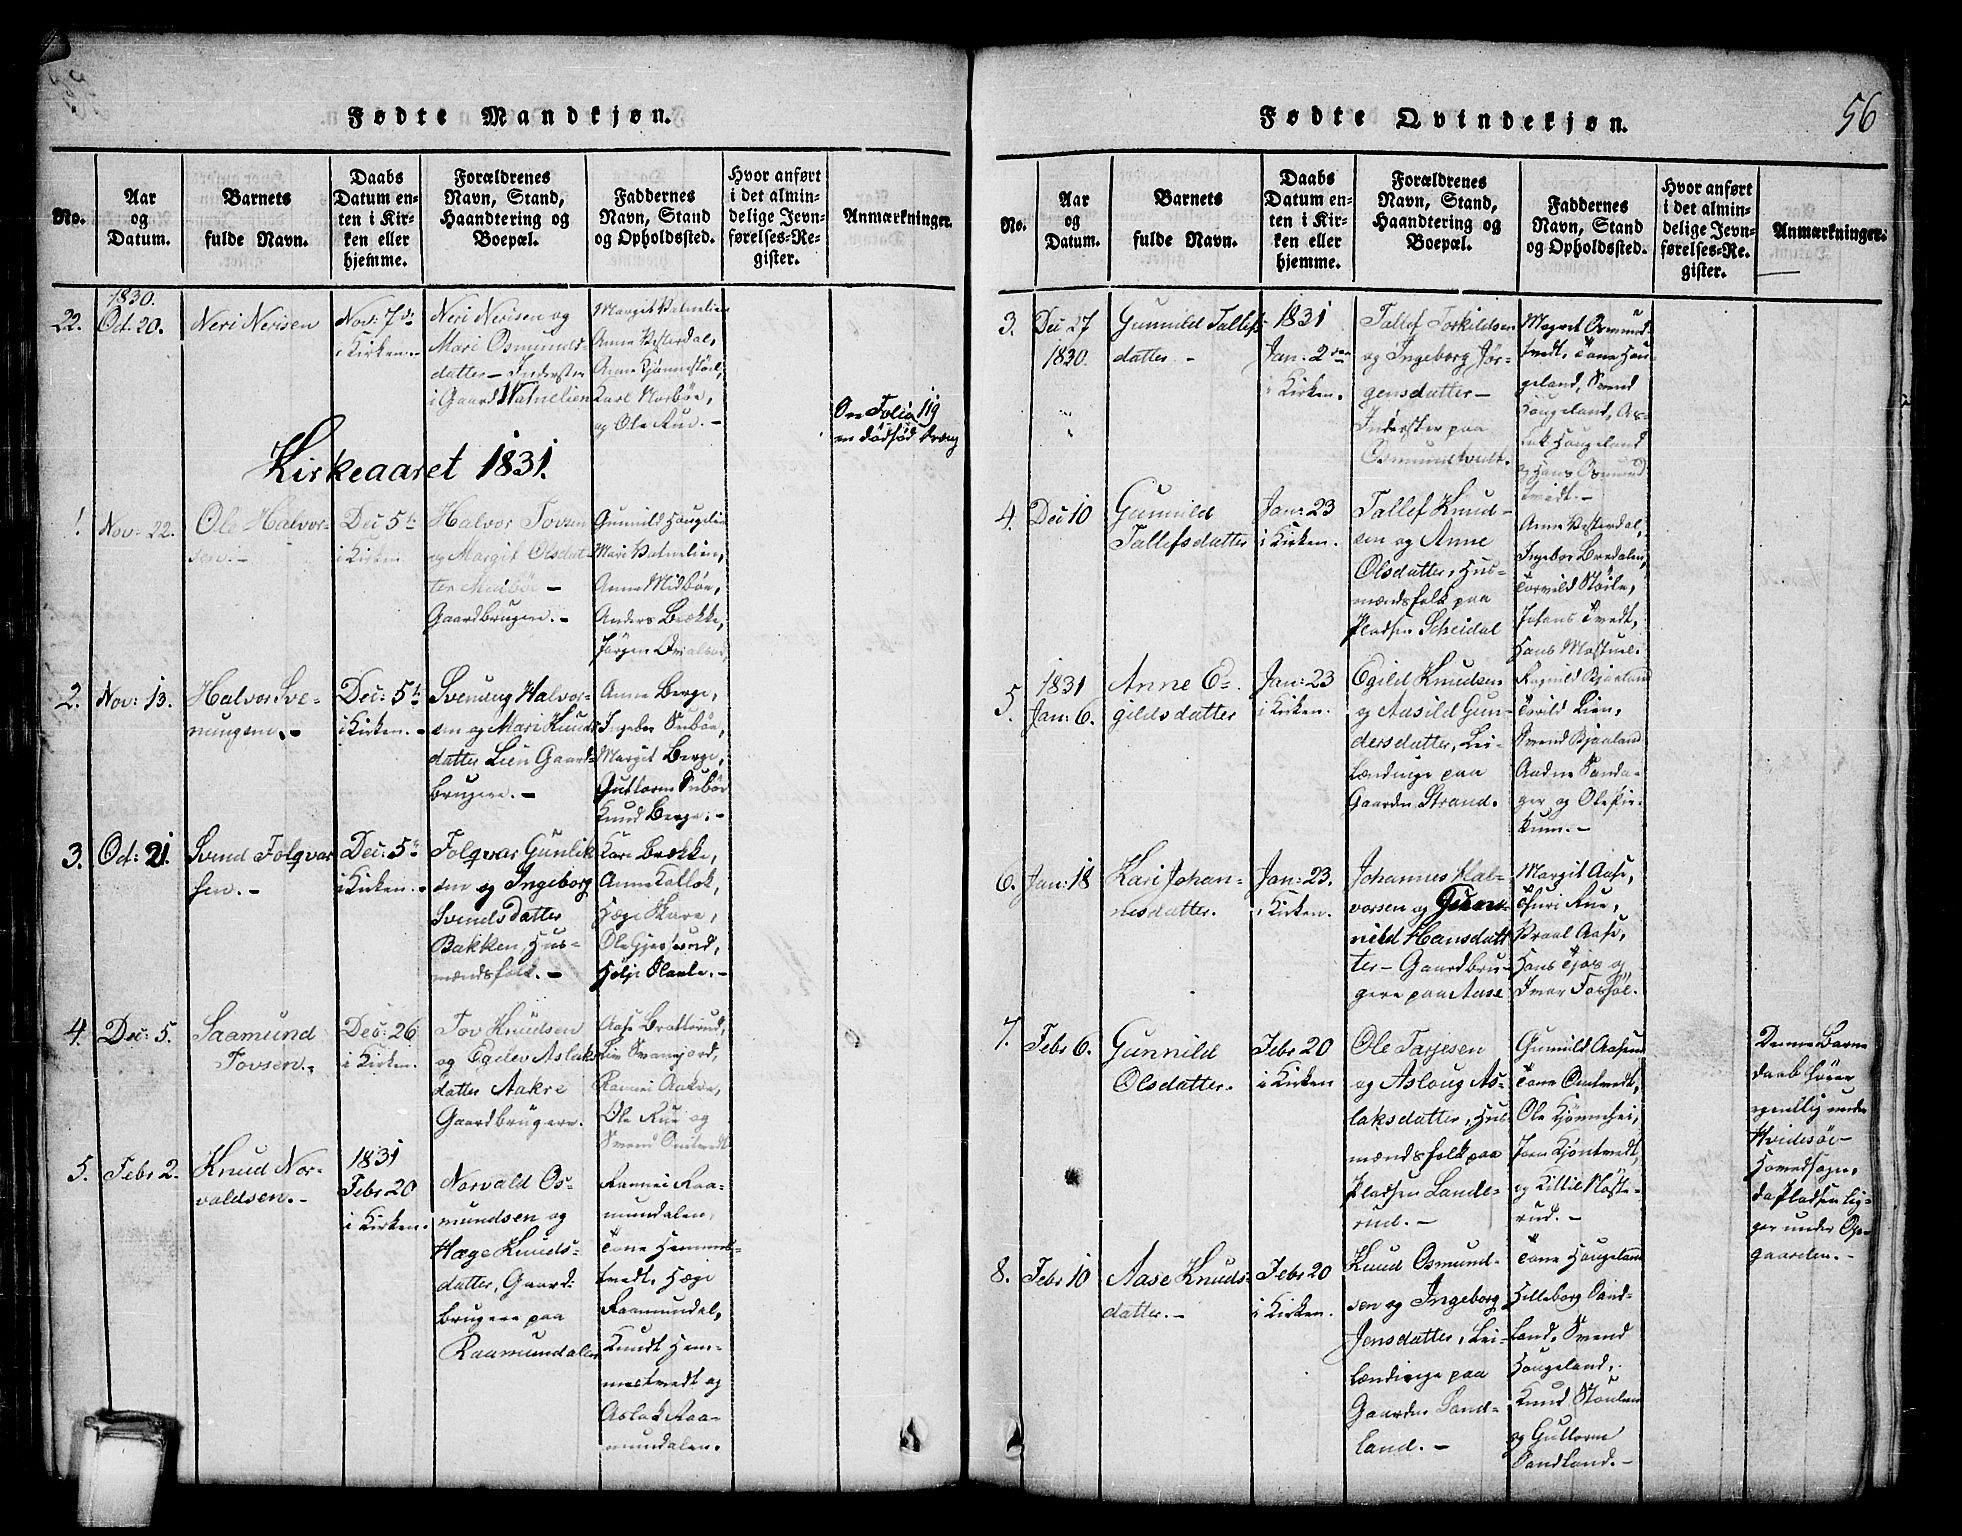 Fødte Mandkjøn.
No.
Aar
og
Datum.
Barnets
fulde Navn.
Daabs
Datum en-
ten i Kir-
ken eller
hjemme.
Forældrenes
Navn, Stand,
Haandtering og
Boepæl.
Faddernes
Navn, Stand
og Opholdssted.
Hvor anført
i det almin-
delige Jevn-
førelses-Re-
gister.
Anmærkninger.
22.
1830.
Oct. 20.
Neri Nerisen
Nov: 7de
i Kirken.
Neri Nerisen og
Mari Osmunds-
datter - Inderster
i Gaard Vatnelien
Margit Vatnelien
Anne Vesterdal,
Anne
Karl Norbøe,
og Ole Rue. -
Folio 119
en dødfød
Kirkeaaret 1831.
1.
Nov: 22.
Ole Halvor-
sen. -
Dec: 5te
i Kirken
Halvor Tovsen
og Margit Olsdat-
ter Midbøe -
Gaardbrugere. -
Gunnild Haugelien
Mari Vatnelien,
Anne Midbøe,
Anders Brække,
Jørgen
2.
Nov: 13.
Halvor Sve-
nungsen. -
Dec: 5te
i Kirken. -
Svenung Halvor-
sen og Mari Knuds
datter Lien Gaard-
brugere. -
Anne Berge,
Ingebor Subøe,
Margit Berge,
Guttorm Subøe
Knud Berge. -
3.
Oct: 21.
Svend Folqvar
sen. -
Dec: 5te
i Kirken. -
Folqvar Gunlik
sen og Ingeborg
Svends Datter
Bakken, Hus-
mændsfolk. -
Kari Brække,
Anne
Hæge
Ole
4.
Dec: 5.
Saamund
Tovsen. -
Dec: 26
i Kirken.
Tov Knudsen
og Egelev Aslak
datter Aakre
Gaardbrugere.
Aase Bratterud,
Liv
Rannei Aakre,
Ole Rue og
Svend
5.
Febr 2.
Knud Nor-
valdsen. -
1831
Febr 20
i Kirken.
Norvald Os-
mundsen og
Hæge Knuds-
datter, Gaard-
brugere paa
Raamundalen
Rannei Raa-
mundalen,
Tone Hemmest-
tvedt, Hæge
Raamundal,
Knudt Hem-
mestvedt og
Aslak Raa-
mundalen.
Fødte Qvindekjøn.
56
No.
Aar
og
Datum.
Barnets
fulde Navn.
Daabs
Datum en-
ten i Kir-
ken eller
hjemme.
Forældrenes
Navn, Stand,
Haandtering og
Boepæl.
Faddernes
Navn, Stand
og Opholdssted.
Hvor anført
i det almin-
delige Jevn-
førelses-Re-
gister.
Anmærkninger.
3.
Dec 27
1830.
Gunnild Tallefs-
datter -
1831
Jan: 2den
i Kirken.
Tallef Torkildsen
og Ingeborg Jør-
gensdatter -
Inderster paa
Osmundtvedt.
Margret Osmund-
tvedt, Tone Hau-
geland, Svend
Haugeland, As-
lak Haugeland
og Hans Osmund
tvedt. -
4.
Dec 10
Gunnild
Tallefsdatter
Jan: 23
i Kirken.
Tallef Knud-
sen og Anne
Olsdatter, Hus-
mændsfolk paa
Pladsen Scheidal
Anne Vesterdal,
Ingebor Bredalen,
Torvild
Johans Tvedt,
Hans
5.
1831
Jan: 6.
Anne E-
gildsdatter
Jan: 23
i Kirken.
Egild Knudsen
og Aasild Gun-
dersdatter, Lei-
lændinge paa
Gaarden Strand.
Ragnild Bjaaland
Torild Lien,
Svend Bjaaland
Aadne Sunda-
ger og Ole Kir-
kum. -
6.
Jan: 18
Kari Johan-
nesdatter.
Jan: 23.
i Kirken.
Johannes Hal-
vorsen og Gun-
nild Hansdatt
ter - Gaardbru-
gere paa Aase
Margit Aase,
Thuri Rue,
Aase,
Hans
Ivar
7.
Febr 6.
Gunnild
Olsdatter.
Febr 20
i Kirken
Ole Tarjesen
og Aslaug As-
laksdatter, Hus-
mændsfolk paa
Pladsen Lande-
rud. -
Gunnild Aasen
Tone Omtvedt,
Ole
og Kittil
rud. -
Denne Barne
daab hører
egentlig under
Hvidesøe
Hovedsogn,
da Pladsen lig-
ger under
gaarden. -
8.
Febr 10
Aase Knuds-
datter. -
Febr 20
i Kirken.
Knud Osmund-
sen og Ingeborg
Jensdatter, Lei-
lændinge paa
Gaarden Sand-
land. -
Tone Haugeland
Hilleborg Sand-
land, Svend
Haugeland,
Knud
og Guttorm
Sandland. -